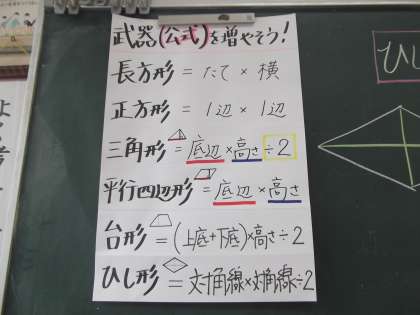 武器(公式)を増やそう!
長方形 = たて × 横
正方形 = 1辺 × 1辺
三角形 = 底辺 × 高さ ÷ 2
平行四辺形 = 底辺 × 高さ
台形 = (上底 + 下底) × 高さ ÷ 2
ひし形 = 対角線 × 対角線 ÷ 2
ひし